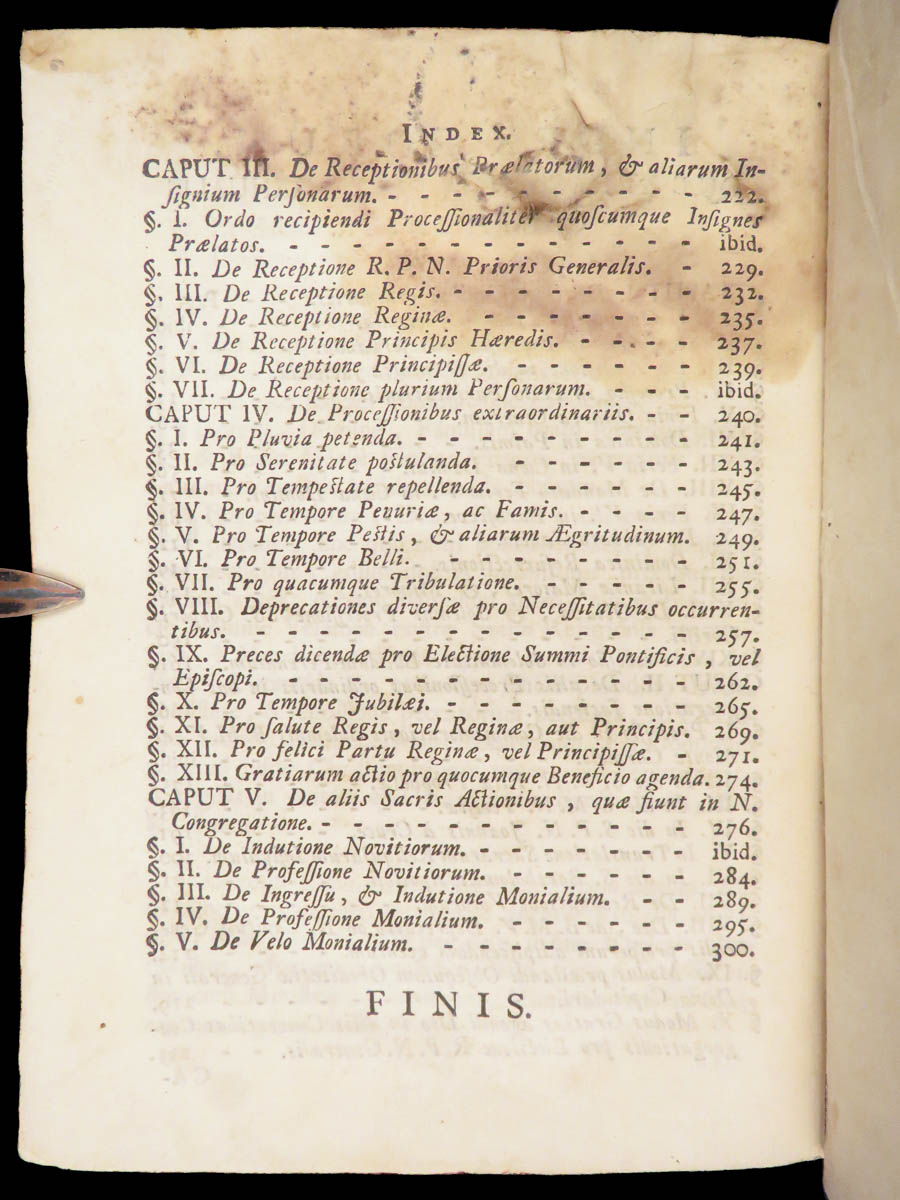 INDEX.
CAPUT III. De Receptionibus Prælatorum, & aliarum In-
ſignium Perſonarum. - - - - - - - - - - - 222.
§. I. Ordo recipiendi Proceſſionaliter quoſcumque Inſignes
Prælatos. - - - - - - - - - - - - - - ibid.
§. II. De Receptione R. P. N. Prioris Generalis. - 229.
§. III. De Receptione Regis. - - - - - - - - - 232.
§. IV. De Receptione Reginæ. - - - - - - - 235.
§. V. De Receptione Principis Hæredis. - - - - - 237.
§. VI. De Receptione Principiſſæ. - - - - - - 239.
§. VII. De Receptione plurium Perſonarum. - - - ibid.
CAPUT IV. De Proceſſionibus extraordinariis. - - 240.
§. I. Pro Pluvia petenda. - - - - - - - - - - 241.
§. II. Pro Serenitate poſtulanda. - - - - - - 243.
§. III. Pro Tempeſtate repellenda. - - - - - - 245.
§. IV. Pro Tempore Penuriæ, ac Famis. - - - - 247.
§. V. Pro Tempore Peſtis, & aliarum Ægritudinum. 249.
§. VI. Pro Tempore Belli. - - - - - - - - 251.
§. VII. Pro quacumque Tribulatione. - - - - - 255.
§. VIII. Deprecationes diverſæ pro Neceſſitatibus occurren-
tibus. - - - - - - - - - - - - - - - 257.
§. IX. Preces dicendæ pro Electione Summi Pontificis, vel
Epiſcopi. - - - - - - - - - - - - - - 262.
§. X. Pro Tempore Jubilæi. - - - - - - - - 265.
§. XI. Pro ſalute Regis, vel Reginæ, aut Principis. 269.
§. XII. Pro felici Partu Reginæ, vel Principiſſæ. - 271.
§. XIII. Gratiarum actio pro quocumque Beneficio agenda. 274.
CAPUT V. De aliis Sacris Actionibus, quæ fiunt in N.
Congregatione. - - - - - - - - - - - - - 276.
§. I. De Indutione Novitiorum. - - - - - - - ibid.
§. II. De Profeſſione Novitiorum. - - - - - - 284.
§. III. De Ingreſſu, & Indutione Monialium. - - 289.
§. IV. De Profeſſione Monialium. - - - - - - 295.
§. V. De Velo Monialium. - - - - - - - - 300.
FINIS.